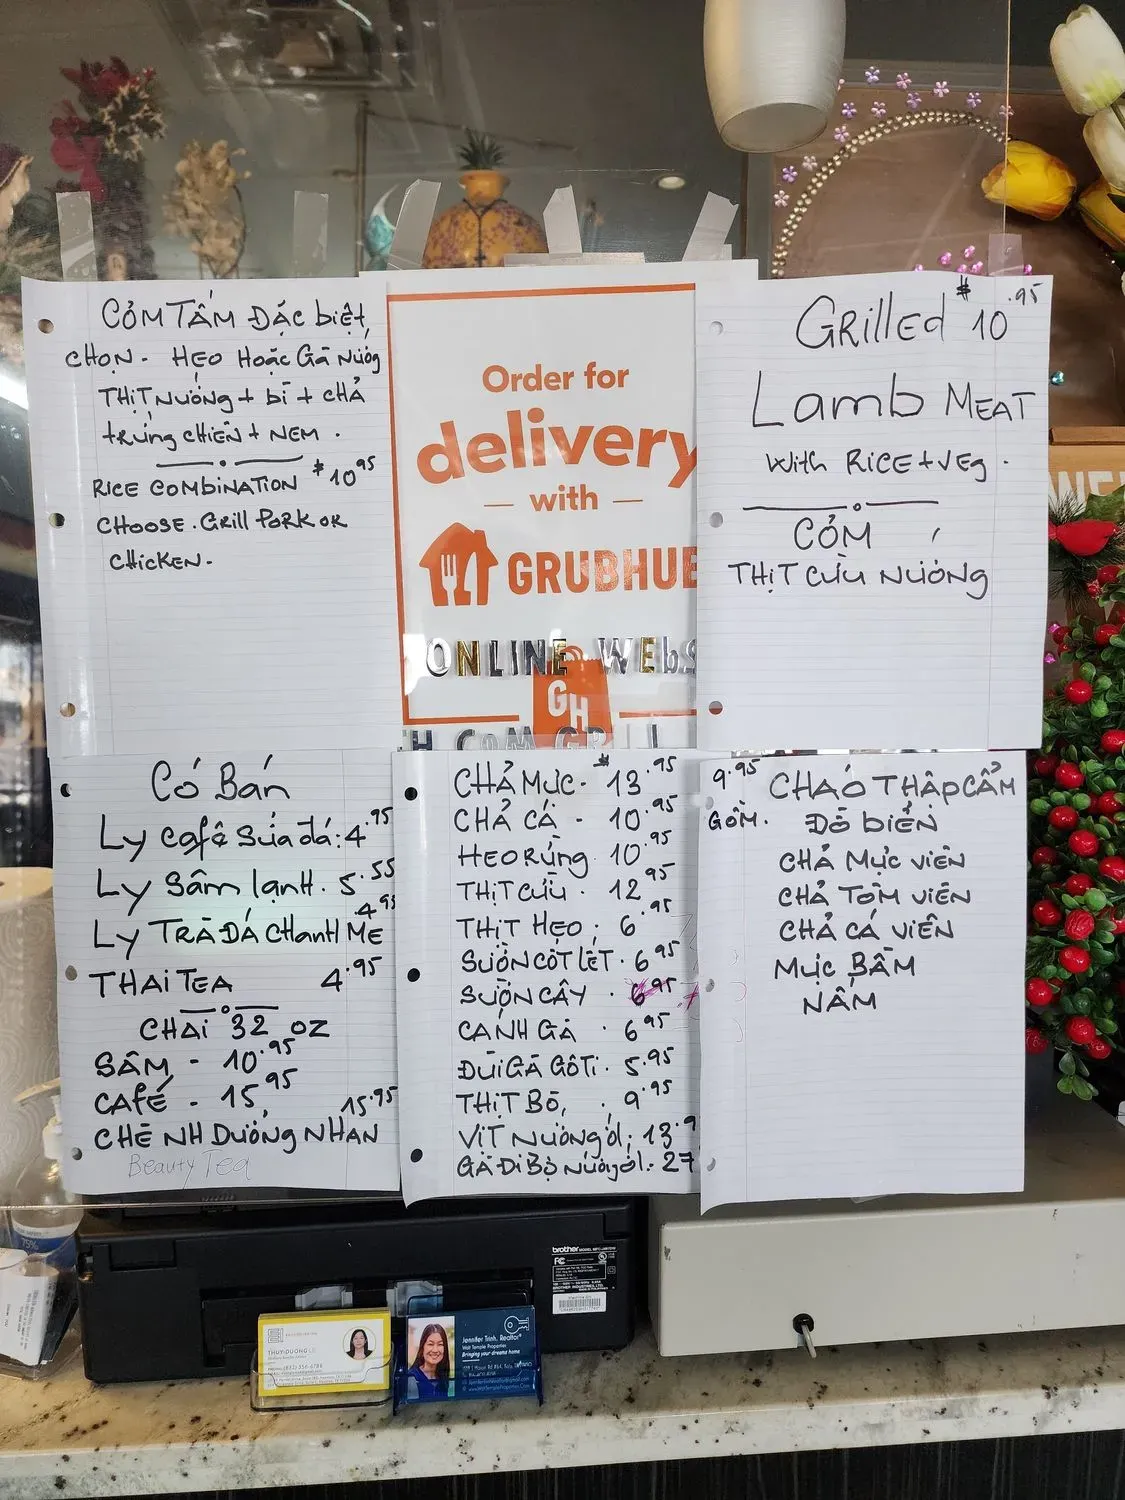 CỎM TẤM ĐẶC biệt
CHỌN - HEO HOẶC GÀ NướNg
THỊT NướNg + bì + CHẢ
trứng CHIÊN + NEM.
RICE COMbiNATION $10.95
CHOOSE. GRill PORK OR
CHiCKEN.
Order for
delivery
with
GRUBHUB
ONLINE WEbS
GH
H COM GRILL
GRillEd $10.95
Lamb MEAT
With RiCE + VEg.
CỎM
THỊT CỪU NướNg
CÓ BÁN
Ly Café Sửa đá: 4.95
Ly Sâm lạnh. 5.55
4.95
Ly TRÀ ĐÁ CHANH MẺ
THAI TEA 4.95
CHAI 32 OZ
SÂM - 10.95
CAfÉ - 15.95
15.95
CHÈ NH DưỡNg NHAN
Beauty Tea
CHẢ MỰC - $13.95
CHẢ CÁ - 10.95
HEO RỪNg 10.95
THỊT CỪU. 12.95
THỊT HEO: 6.95
SƯỜN CỐT LẾT. 6.95
SƯỜN CÂY . 6.95
CÁNH GÀ . 6.95
ĐÙI GÀ GÔ TI. 5.95
THỊT BÒ, . 9.95
VỊT NướNg ól: 13.9
GÀ Đi Bộ NướNg ól. 27
9.95 CHÁO THẬP CẨM
GỒM. ĐỒ biỂN
CHẢ MỰC VIÊN
CHẢ TÔM VIÊN
CHẢ CÁ VIÊN
MỰC BẦM
NẤM
brother
FC
75%
THUY-DUONG LE
(832) 356-6788
Jennifer Trinh, Realtor
Walt Temple Properties
Bringing your dreams home